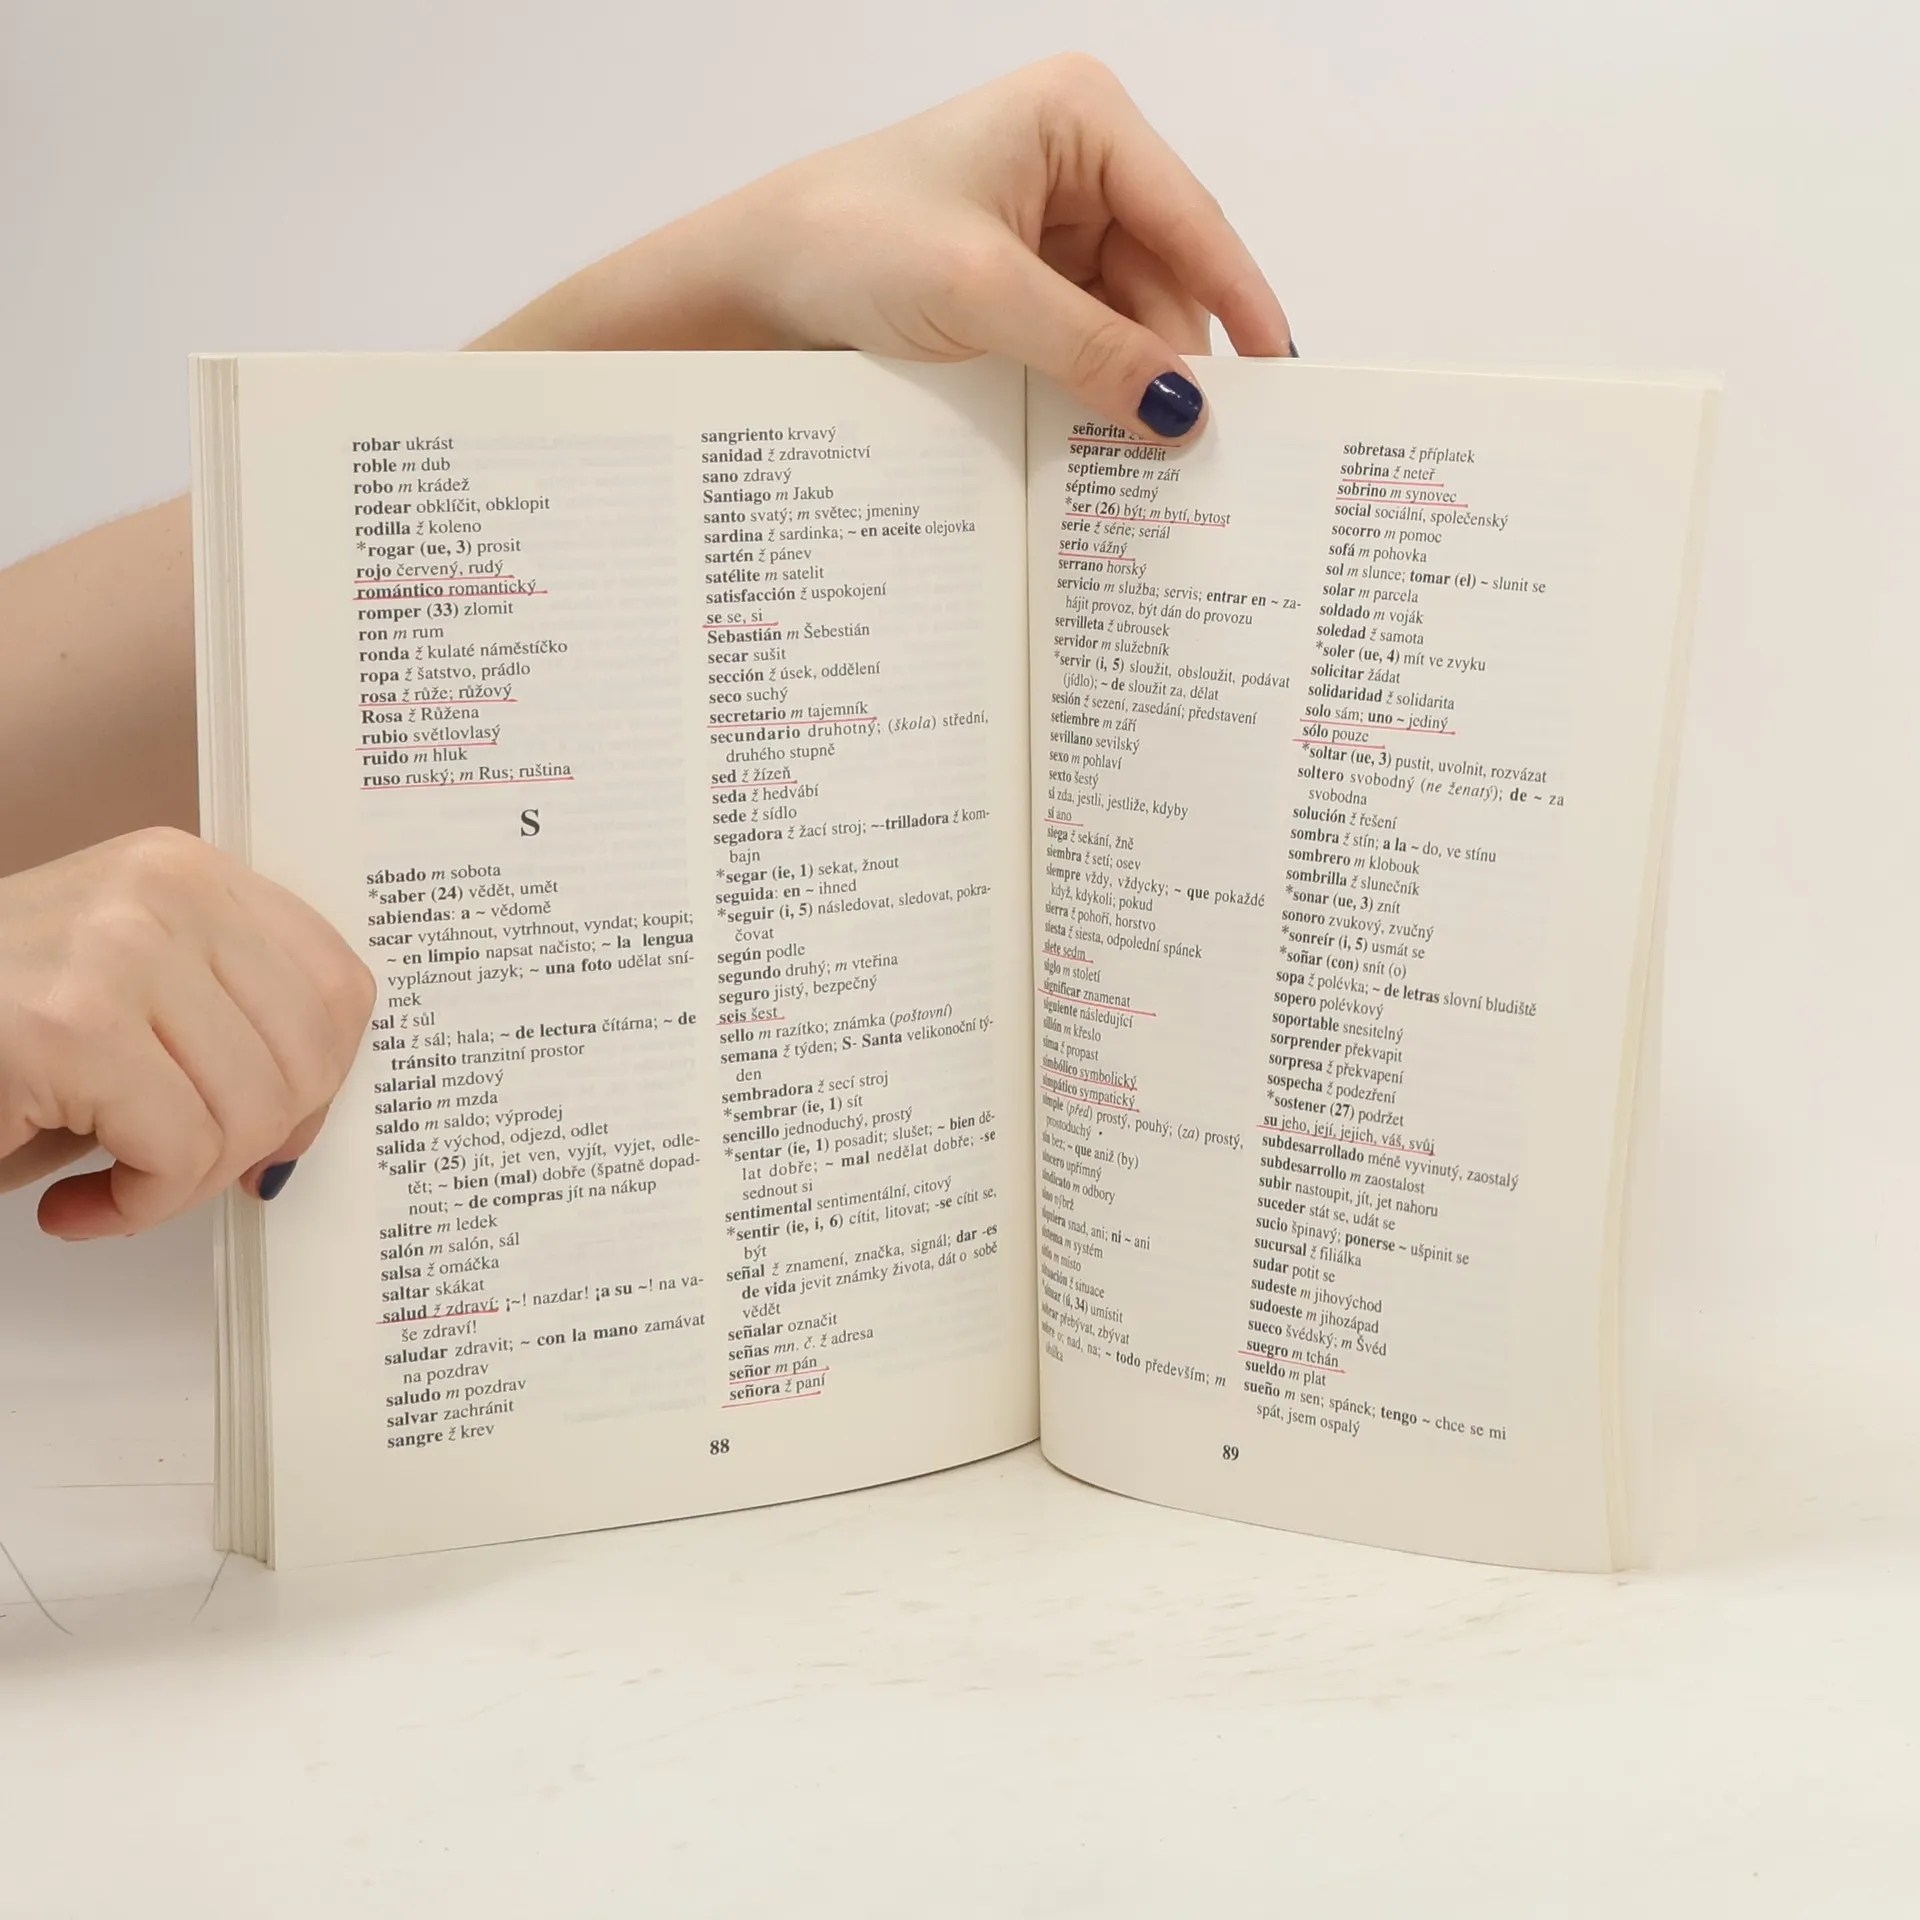 robar ukrást
roble m dub
robo m krádež
rodear obklíčit, obklopit
rodilla ž koleno
*rogar (ue, 3) prosit
rojo červený, rudý
romántico romantický
romper (33) zlomit
ron m rum
ronda ž kulaté náměstíčko
ropa ž šatstvo, prádlo
rosa ž růže; růžový
Rosa ž Růžena
rubio světlovlasý
ruido m hluk
ruso ruský; m Rus; ruština
S
sábado m sobota
*saber (24) vědět, umět
sabiendas: a ~ vědomě
sacar vytáhnout, vytrhnout, vyndat; koupit;
~ en limpio napsat načisto; ~ la lengua
vypláznout jazyk; ~ una foto udělat sní-
mek
sal ž sůl
sala ž sál; hala; ~ de lectura čítárna; ~ de
tránsito tranzitní prostor
salarial mzdový
salario m mzda
saldo m saldo; výprodej
salida ž východ, odjezd, odlet
*salir (25) jít, jet ven, vyjít, vyjet, odle-
tět; ~ bien (mal) dobře (špatně dopad-
nout; ~ de compras jít na nákup
salitre m ledek
salón m salón, sál
salsa ž omáčka
saltar skákat
salud ž zdraví; ¡~! nazdar! ¡a su ~! na va-
še zdraví!
saludar zdravit; ~ con la mano zamávat
na pozdrav
saludo m pozdrav
salvar zachránit
sangre ž krev
sangriento krvavý
sanidad ž zdravotnictví
sano zdravý
Santiago m Jakub
santo svatý; m světec; jmeniny
sardina ž sardinka; ~ en aceite olejovka
sartén ž pánev
satélite m satelit
satisfacción ž uspokojení
se se, si
Sebastián m Šebestián
secar sušit
sección ž úsek, oddělení
seco suchý
secretario m tajemník
secundario druhotný; (škola) střední,
druhého stupně
sed ž žízeň
seda ž hedvábí
sede ž sídlo
segadora ž žací stroj; ~-trilladora ž kom-
bajn
*segar (ie, 1) sekat, žnout
seguida: en ~ ihned
*seguir (i, 5) následovat, sledovat, pokra-
čovat
según podle
segundo druhý; m vteřina
seguro jistý, bezpečný
seis šest
sello m razítko; známka (poštovní)
semana ž týden; S- Santa velikonoční tý-
den
sembradora ž secí stroj
*sembrar (ie, 1) sít
sencillo jednoduchý, prostý
*sentar (ie, 1) posadit; slušet; ~ bien dě-
lat dobře; ~ mal nedělat dobře; -se
sednout si
sentimental sentimentální, citový
*sentir (ie, i, 6) cítit, litovat; -se cítit se,
být
señal ž znamení, značka, signál; dar -es
de vida jevit známky života, dát o sobě
vědět
señalar označit
señas mn. č. ž adresa
señor m pán
señora ž paní
88
señorita
separar oddělit
septiembre m září
séptimo sedmý
*ser (26) být; m bytí, bytost
serie ž série; seriál
serio vážný
serrano horský
servicio m služba; servis; entrar en ~ za-
hájit provoz, být dán do provozu
servilleta ž ubrousek
servidor m služebník
*servir (i, 5) sloužit, obsloužit, podávat
(jídlo); ~ de sloužit za, dělat
sesión ž sezení, zasedání; představení
setiembre m září
sevillano sevilský
sexo m pohlaví
sexto šestý
si zda, jestli, jestliže, kdyby
sí ano
siega ž sekání, žně
siembra ž setí; osev
siempre vždy, vždycky; ~ que pokaždé
když, kdykoli; pokud
sierra ž pohoří, horstvo
siesta ž siesta, odpolední spánek
siete sedm
siglo m století
significar znamenat
siguiente následující
sillón m křeslo
sima ž propast
simbólico symbolický
simpático sympatický
simple (před) prostý, pouhý; (za) prostý,
prostoduchý
sin bez; ~ que aniž (by)
sincero upřímný
sindicato m odbory
sino nýbrž
siquiera snad, ani; ni ~ ani
sistema m systém
sitio m místo
situación ž situace
*situar (ú, 34) umístit
sobrar přebývat, zbývat
sobre o; nad, na; ~ todo především; m
obálka
sobretasa ž příplatek
sobrina ž neteř
sobrino m synovec
social sociální, společenský
socorro m pomoc
sofá m pohovka
sol m slunce; tomar (el) ~ slunit se
solar m parcela
soldado m voják
soledad ž samota
*soler (ue, 4) mít ve zvyku
solicitar žádat
solidaridad ž solidarita
solo sám; uno ~ jediný
sólo pouze
*soltar (ue, 3) pustit, uvolnit, rozvázat
soltero svobodný (ne ženatý); de ~ za
svobodna
solución ž řešení
sombra ž stín; a la ~ do, ve stínu
sombrero m klobouk
sombrilla ž slunečník
*sonar (ue, 3) znít
sonoro zvukový, zvučný
*sonreír (i, 5) usmát se
*soñar (con) snít (o)
sopa ž polévka; ~ de letras slovní bludiště
sopero polévkový
soportable snesitelný
sorprender překvapit
sorpresa ž překvapení
sospecha ž podezření
*sostener (27) podržet
su jeho, její, jejich, váš, svůj
subdesarrollado méně vyvinutý, zaostalý
subdesarrollo m zaostalost
subir nastoupit, jít, jet nahoru
suceder stát se, udát se
sucio špinavý; ponerse ~ ušpinit se
sucursal ž filiálka
sudar potit se
sudeste m jihovýchod
sudoeste m jihozápad
sueco švédský; m Švéd
suegro m tchán
sueldo m plat
sueño m sen; spánek; tengo ~ chce se mi
spát, jsem ospalý
89